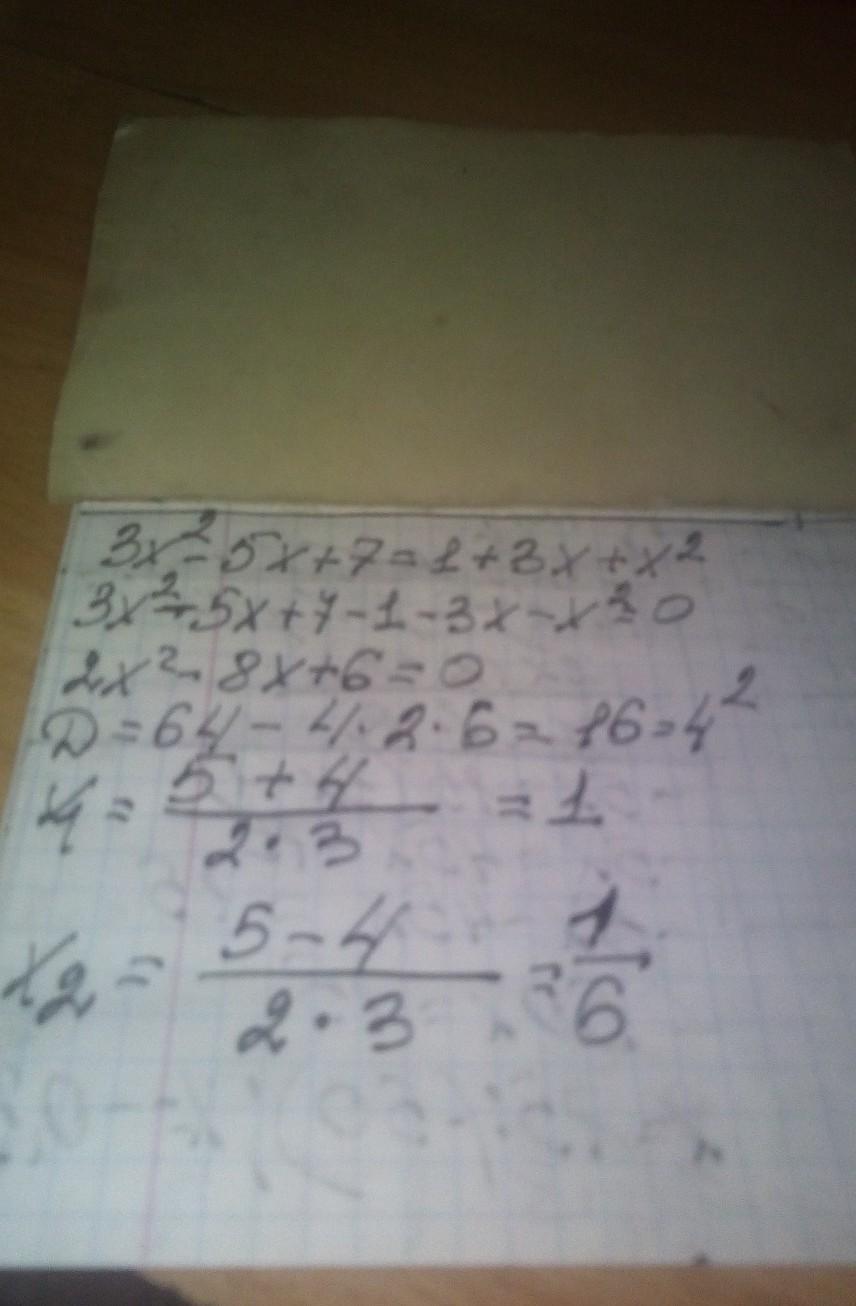 3x² - 5x + 7 = 1 + 3x + x²
3x² - 5x + 7 - 1 - 3x - x² = 0
2x² - 8x + 6 = 0
D = 64 - 4 · 2 · 6 = 16 = 4²
x₁ = (5 + 4)/(2 · 3) = 1
x₂ = (5 - 4)/(2 · 3) = 1/6